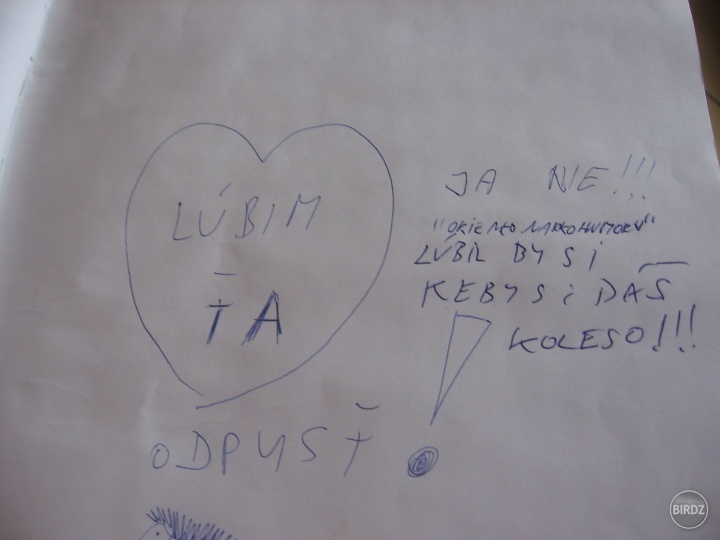 LÚBIM
ŤA
ODPUSŤ
JA NIE!!!
"OKIENKO NARKOHUMORU"
LÚBIL BY SI
KEBY SI DAŠ
KOLESO!!!
BIRDZ